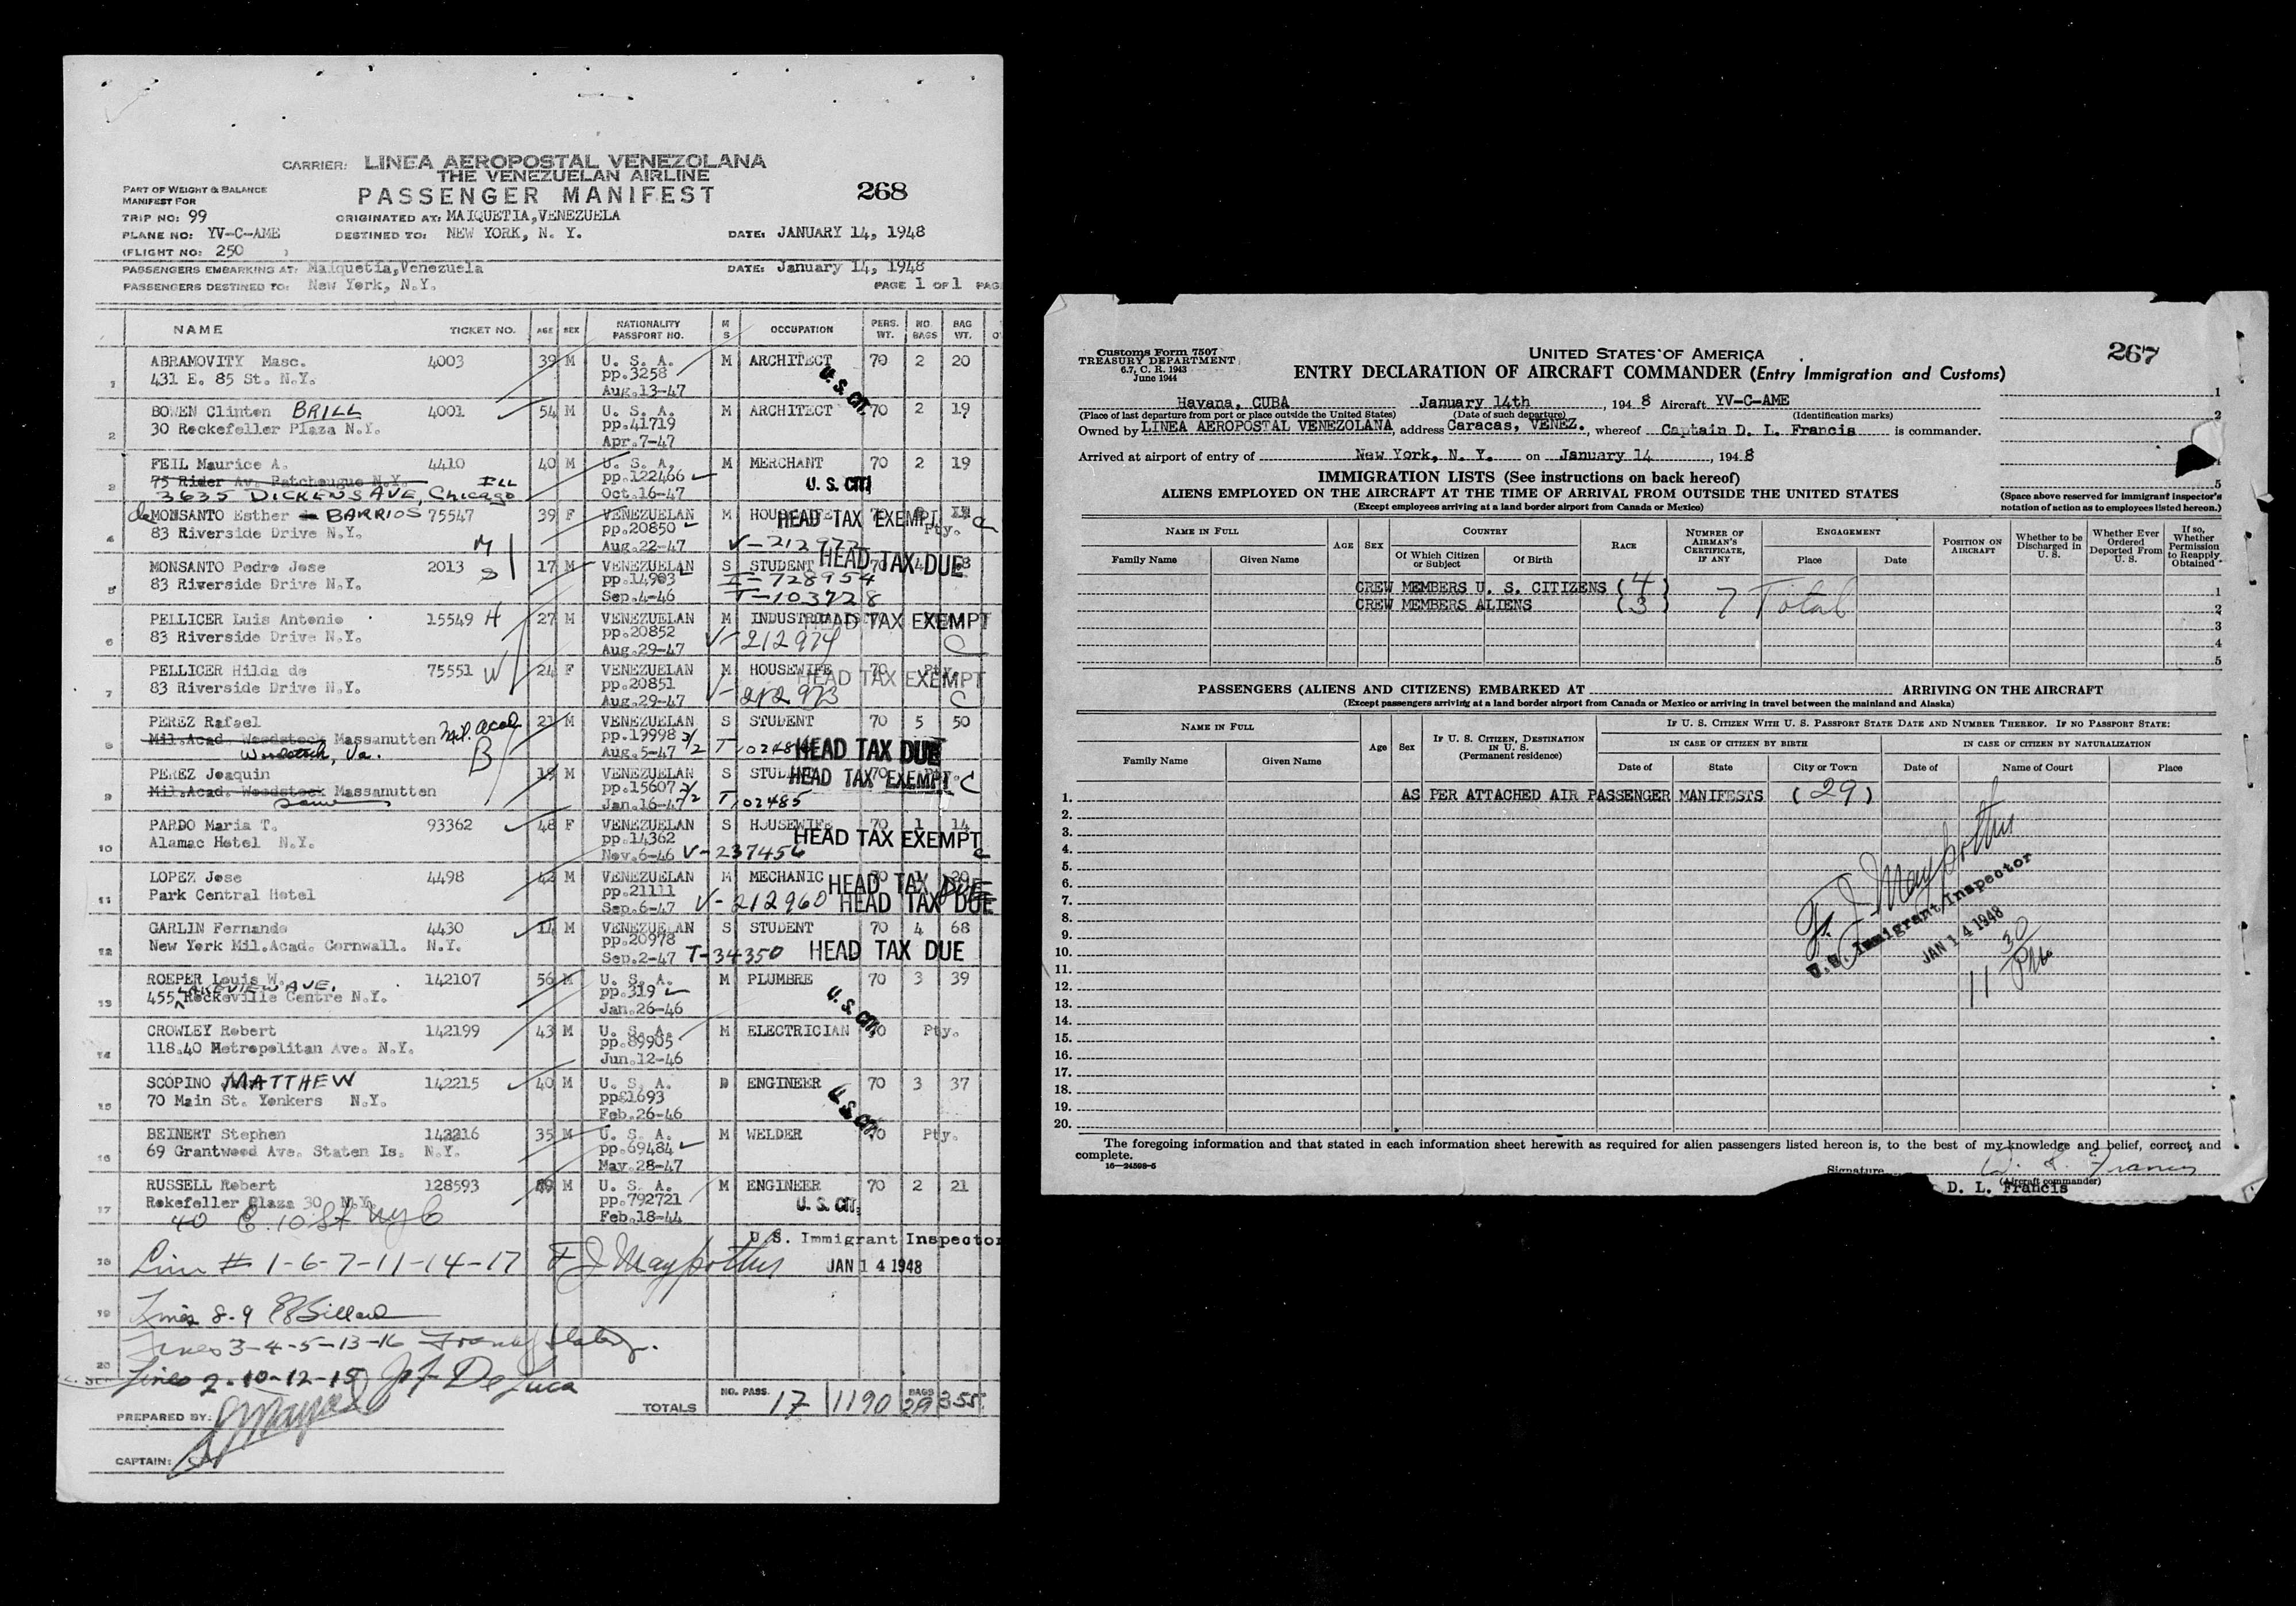 CARRIER: LINEA AEROPOSTAL VENEZOLANA
THE VENEZUELAN AIRLINE
PART OF WEIGHT & BALANCE
MANIFEST FOR
PASSENGER MANIFEST
268
TRIP NO: 99
ORIGINATED AT: MAIQUETIA, VENEZUELA
PLANE NO: YV-C-AME
DESTINED TO: NEW YORK, N. Y.
DATE: JANUARY 14, 1948
(FLIGHT NO: 250 )
PASSENGERS EMBARKING AT: Maiquetia, Venezuela
DATE: January 14, 1948
PASSENGERS DESTINED TO: New York, N.Y.
PAGE 1 OF 1 PAG
NAME TICKET NO. AGE SEX NATIONALITY PASSPORT NO. M S OCCUPATION PERS. WT. NO. BAGS BAG WT.
1 ABRAMOVITY Masc. 4003 39 M U. S. A. M ARCHITECT 70 2 20
431 E. 85 St. N.Y. pp.3258
Aug.13-47
U. S. CIT.
2 BOWEN Clinton BRILL 4001 54 M U. S. A. M ARCHITECT 70 2 19
30 Rockefeller Plaza N.Y. pp.41719
Apr.7-47
3 FEIL Maurice A. 4410 40 M U. S. A. M MERCHANT 70 2 19
75 Rider Av. Patchougue N.Y. pp.122466
3635 DICKENS AVE, Chicago ILL Oct.16-47
U. S. CIT
4 de MONSANTO Esther BARRIOS 75547 39 F VENEZUELAN M HOUSEWIFE 70
83 Riverside Drive N.Y. pp.20850 Pty.
Aug.22-47 V-212972
HEAD TAX EXEMPT C
5 MONSANTO Pedro Jose 2013 17 M VENEZUELAN S STUDENT 70 4
83 Riverside Drive N.Y. pp.14903 I-728954
Sep.4-46 T-103728
HEAD TAX DUE
6 PELLICER Luis Antonio 15549 H 27 M VENEZUELAN M INDUSTRIAL
83 Riverside Drive N.Y. pp.20852
Aug.29-47 V-212974
HEAD TAX EXEMPT C
7 PELLICER Hilda de 75551 W 24 F VENEZUELAN M HOUSEWIFE 70 Pty.
83 Riverside Drive N.Y. pp.20851
Aug.29-47 V-212973
HEAD TAX EXEMPT C
8 PEREZ Rafael 21 M VENEZUELAN S STUDENT 70 5 50
Mil.Acad. Woodstock Massanutten Mil. Acad. pp.19998
Woodstock, Va. Aug.5-47
HEAD TAX DUE
9 PEREZ Joaquin 19 M VENEZUELAN S STUDENT 70
Mil.Acad. Woodstock Massanutten pp.15607
same Jan.16-47 T 102485
HEAD TAX EXEMPT C
10 PARDO Maria T. 93362 48 F VENEZUELAN S HOUSEWIFE 70 1 14
Alamac Hotel N.Y. pp.14362
Nov.6-46 V-237456
HEAD TAX EXEMPT C
11 LOPEZ Jose 4498 42 M VENEZUELAN M MECHANIC 70 1 20
Park Central Hotel pp.21111
Sep.6-47 V-212960
HEAD TAX DUE
HEAD TAX DUE
12 GARLIN Fernando 4430 14 M VENEZUELAN S STUDENT 70 4 68
New York Mil.Acad. Cornwall. N.Y. pp.20978
Sep.2-47 T-34350
HEAD TAX DUE
13 ROEPER Louis W. 142107 56 M U. S. A. M PLUMBRE 70 3 39
LAKEVIEW AVE.
455 Rockeville Centre N.Y. pp.319
Jan.26-46
U. S. CIT.
14 CROWLEY Robert 142199 43 M U. S. A. M ELECTRICIAN 70 Pty.
118.40 Metropolitan Ave. N.Y. pp.89905
Jun.12-46
15 SCOPINO MATTHEW 142215 40 M U. S. A. D ENGINEER 70 3 37
70 Main St. Yonkers N.Y. pp81693
Feb.26-46
U. S. CIT.
16 BEINERT Stephen 142216 35 M U. S. A. M WELDER 70 Pty.
69 Grantwood Ave. Staten Is. N.Y. pp.69484
May.28-47
17 RUSSELL Robert 128593 49 M U. S. A. M ENGINEER 70 2 21
Rokefeller Plaza 30 N.Y. pp.792721
40 E. 10 St NYC Feb.18-44
U. S. CIT.
U.S. Immigrant Inspector
18 Line # 1-6-7-11-14-17 F J Maypother JAN 14 1948
19 Lines 8-9
Lines 3-4-5-13-16
20 Lines 2-10-12-15 De Luca
TOTALS NO. PASS. 17 1190 BAGS 29 355
PREPARED BY:
CAPTAIN:
Customs Form 7507
TREASURY DEPARTMENT
6.7, C. R. 1943
June 1944
UNITED STATES OF AMERICA
267
ENTRY DECLARATION OF AIRCRAFT COMMANDER (Entry Immigration and Customs)
Havana, CUBA January 14th, 1948 Aircraft YV-C-AME
(Place of last departure from port or place outside the United States) (Date of such departure) (Identification marks)
Owned by LINEA AEROPOSTAL VENEZOLANA, address Caracas, VENEZ., whereof Captain D. L. Francis is commander.
Arrived at airport of entry of New York, N. Y. on January 14, 1948
1
2
4
5
IMMIGRATION LISTS (See instructions on back hereof)
ALIENS EMPLOYED ON THE AIRCRAFT AT THE TIME OF ARRIVAL FROM OUTSIDE THE UNITED STATES
(Except employees arriving at a land border airport from Canada or Mexico)
(Space above reserved for immigrant inspector's notation of action as to employees listed hereon.)
NAME IN FULL AGE SEX COUNTRY RACE NUMBER OF AIRMAN'S CERTIFICATE, IF ANY ENGAGEMENT POSITION ON AIRCRAFT Whether to be Discharged in U. S. Whether Ever Ordered Deported From U. S. If so, Whether Permission to Reapply Obtained
Family Name Given Name Of Which Citizen or Subject Of Birth Place Date
CREW MEMBERS U. S. CITIZENS (4) 1
CREW MEMBERS ALIENS (3) 7 Total 2
3
4
5
PASSENGERS (ALIENS AND CITIZENS) EMBARKED AT ARRIVING ON THE AIRCRAFT
(Except passengers arriving at a land border airport from Canada or Mexico or arriving in travel between the mainland and Alaska)
NAME IN FULL Age Sex IF U. S. CITIZEN, DESTINATION IN U. S. (Permanent residence) IF U. S. CITIZEN WITH U. S. PASSPORT STATE DATE AND NUMBER THEREOF. IF NO PASSPORT STATE:
IN CASE OF CITIZEN BY BIRTH IN CASE OF CITIZEN BY NATURALIZATION
Family Name Given Name Date of State City or Town Date of Name of Court Place
1. AS PER ATTACHED AIR PASSENGER MANIFESTS (29)
2.
3.
4.
5.
6.
7.
8.
9.
10.
11.
12.
13.
14.
15.
16.
17.
18.
19.
20.
F. J. Maypother
U. S. Immigrant Inspector
JAN 14 1948
11 30 PM
The foregoing information and that stated in each information sheet herewith as required for alien passengers listed hereon is, to the best of my knowledge and belief, correct and
complete.
16—24598-5
Signature D. L. Francis
(Aircraft commander)
D. L. Francis